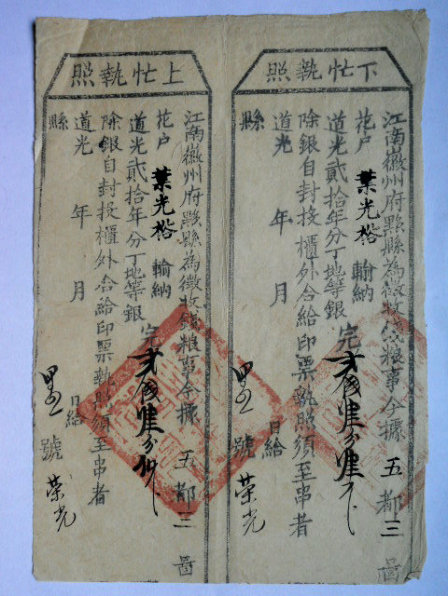 下忙執照
江南徽州府黟縣為徵收錢粮事今據 五都三啚
花戶 葉光裕 輸納
道光貳拾年分丁地等銀 完
除銀自封投櫃外合給印票執照須至串者
道光 年 月 日給
縣 號 荣光
上忙執照
江南徽州府黟縣為徵收錢粮事今據 五都三啚
花戶 葉光裕 輸納
道光貳拾年分丁地等銀 完
除銀自封投櫃外合給印票執照須至串者
道光 年 月 日給
縣 號 荣光